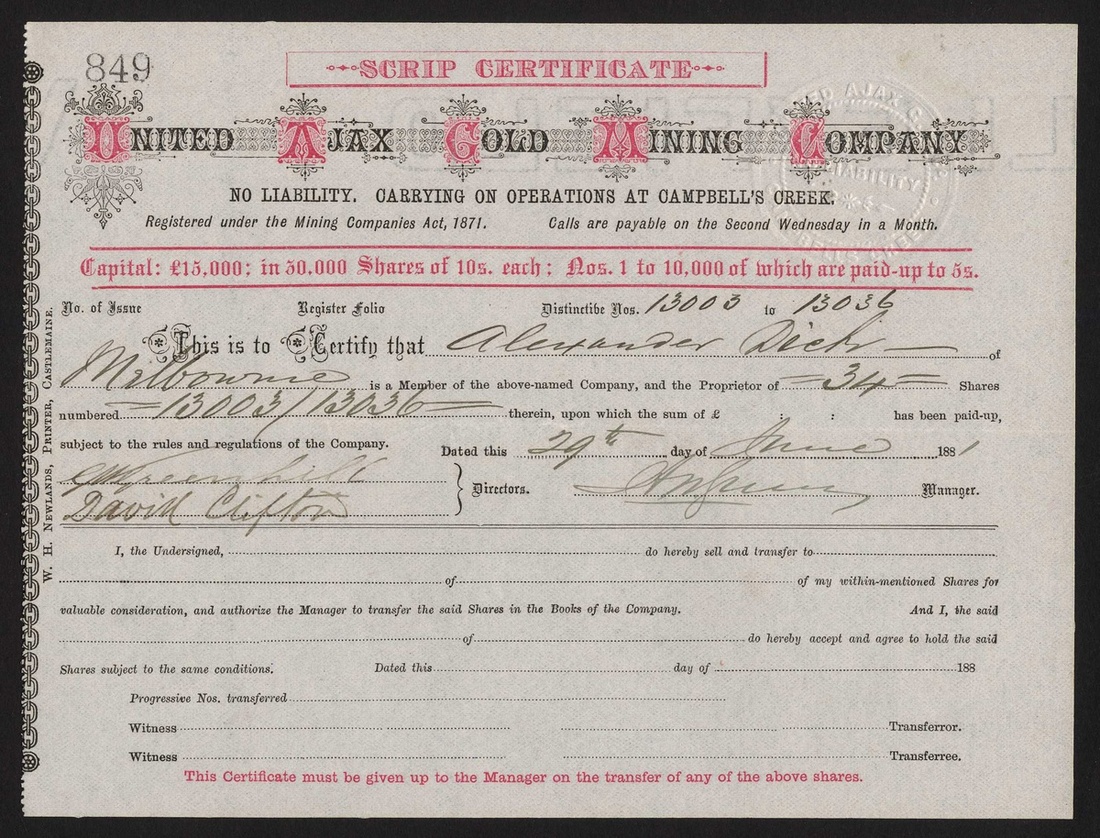 849
SCRIP CERTIFICATE
UNITED AJAX GOLD MINING COMPANY
NO LIABILITY. CARRYING ON OPERATIONS AT CAMPBELL'S CREEK.
Registered under the Mining Companies Act, 1871. Calls are payable on the Second Wednesday in a Month.
Capital: £15,000; in 30,000 Shares of 10s. each; Nos. 1 to 10,000 of which are paid-up to 5s.
No. of Issue Register Folio Distinctibe Nos. 13003 to 13036
This is to Certify that Alexander Dick of
Melbourne is a Member of the above-named Company, and the Proprietor of =34= Shares
numbered =13003/13036= therein, upon which the sum of £ : : has been paid-up,
subject to the rules and regulations of the Company.
Dated this 29th day of June 1881
David Clifton
Directors. Manager.
I, the Undersigned, do hereby sell and transfer to
of of my within-mentioned Shares for
valuable consideration, and authorize the Manager to transfer the said Shares in the Books of the Company. And I, the said
of do hereby accept and agree to hold the said
Shares subject to the same conditions. Dated this day of 188
Progressive Nos. transferred
Witness Transferror.
Witness Transferree.
This Certificate must be given up to the Manager on the transfer of any of the above shares.
W. H. NEWLANDS, PRINTER, CASTLEMAINE.